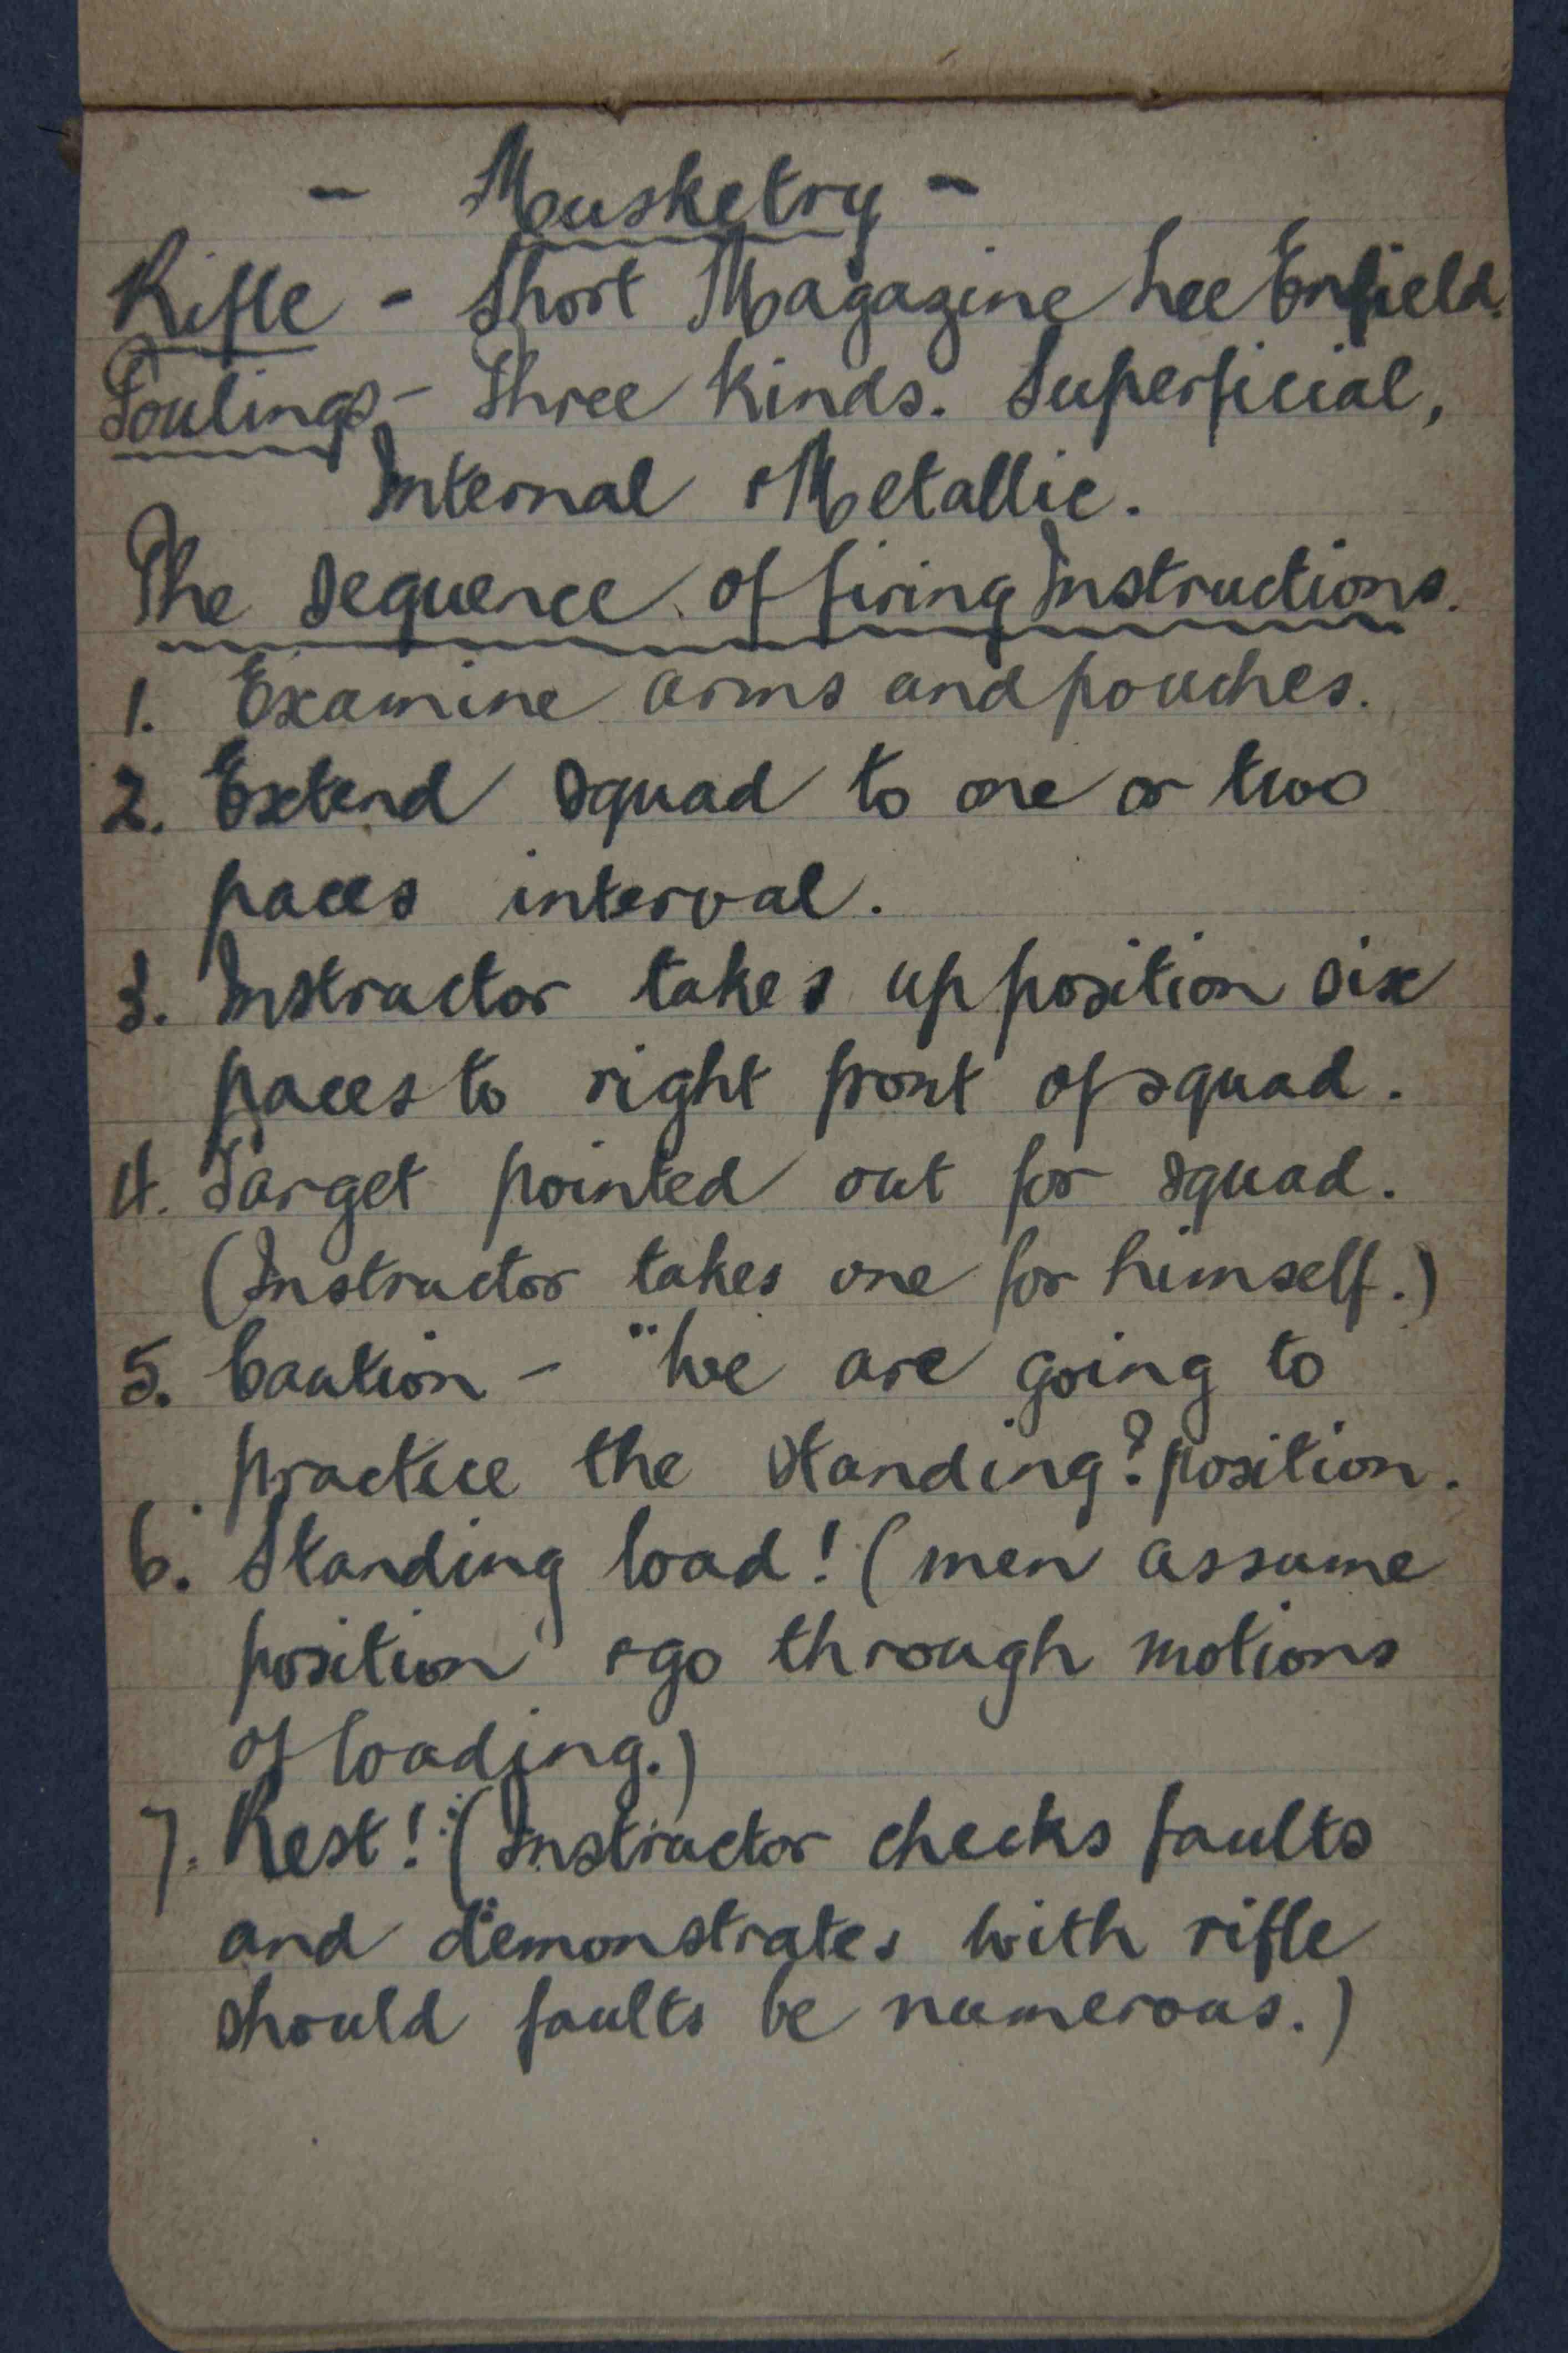 - Musketry -
Rifle - Short Magazine Lee Enfield.
Foulings - Three kinds. Superficial,
Internal & Metallic.
The sequence of firing Instructions.
1. Examine arms and pouches.
2. Extend squad to one or two
paces interval.
3. Instructor takes up position six
paces to right front of squad.
4. Target pointed out for squad.
(Instructor takes one for himself.)
5. Caution - "We are going to
practice the standing? position.
6. Standing load! (men assume
position & go through motions
of loading.)
7. Rest! (Instructor checks faults
and demonstrates with rifle
should faults be numerous.)